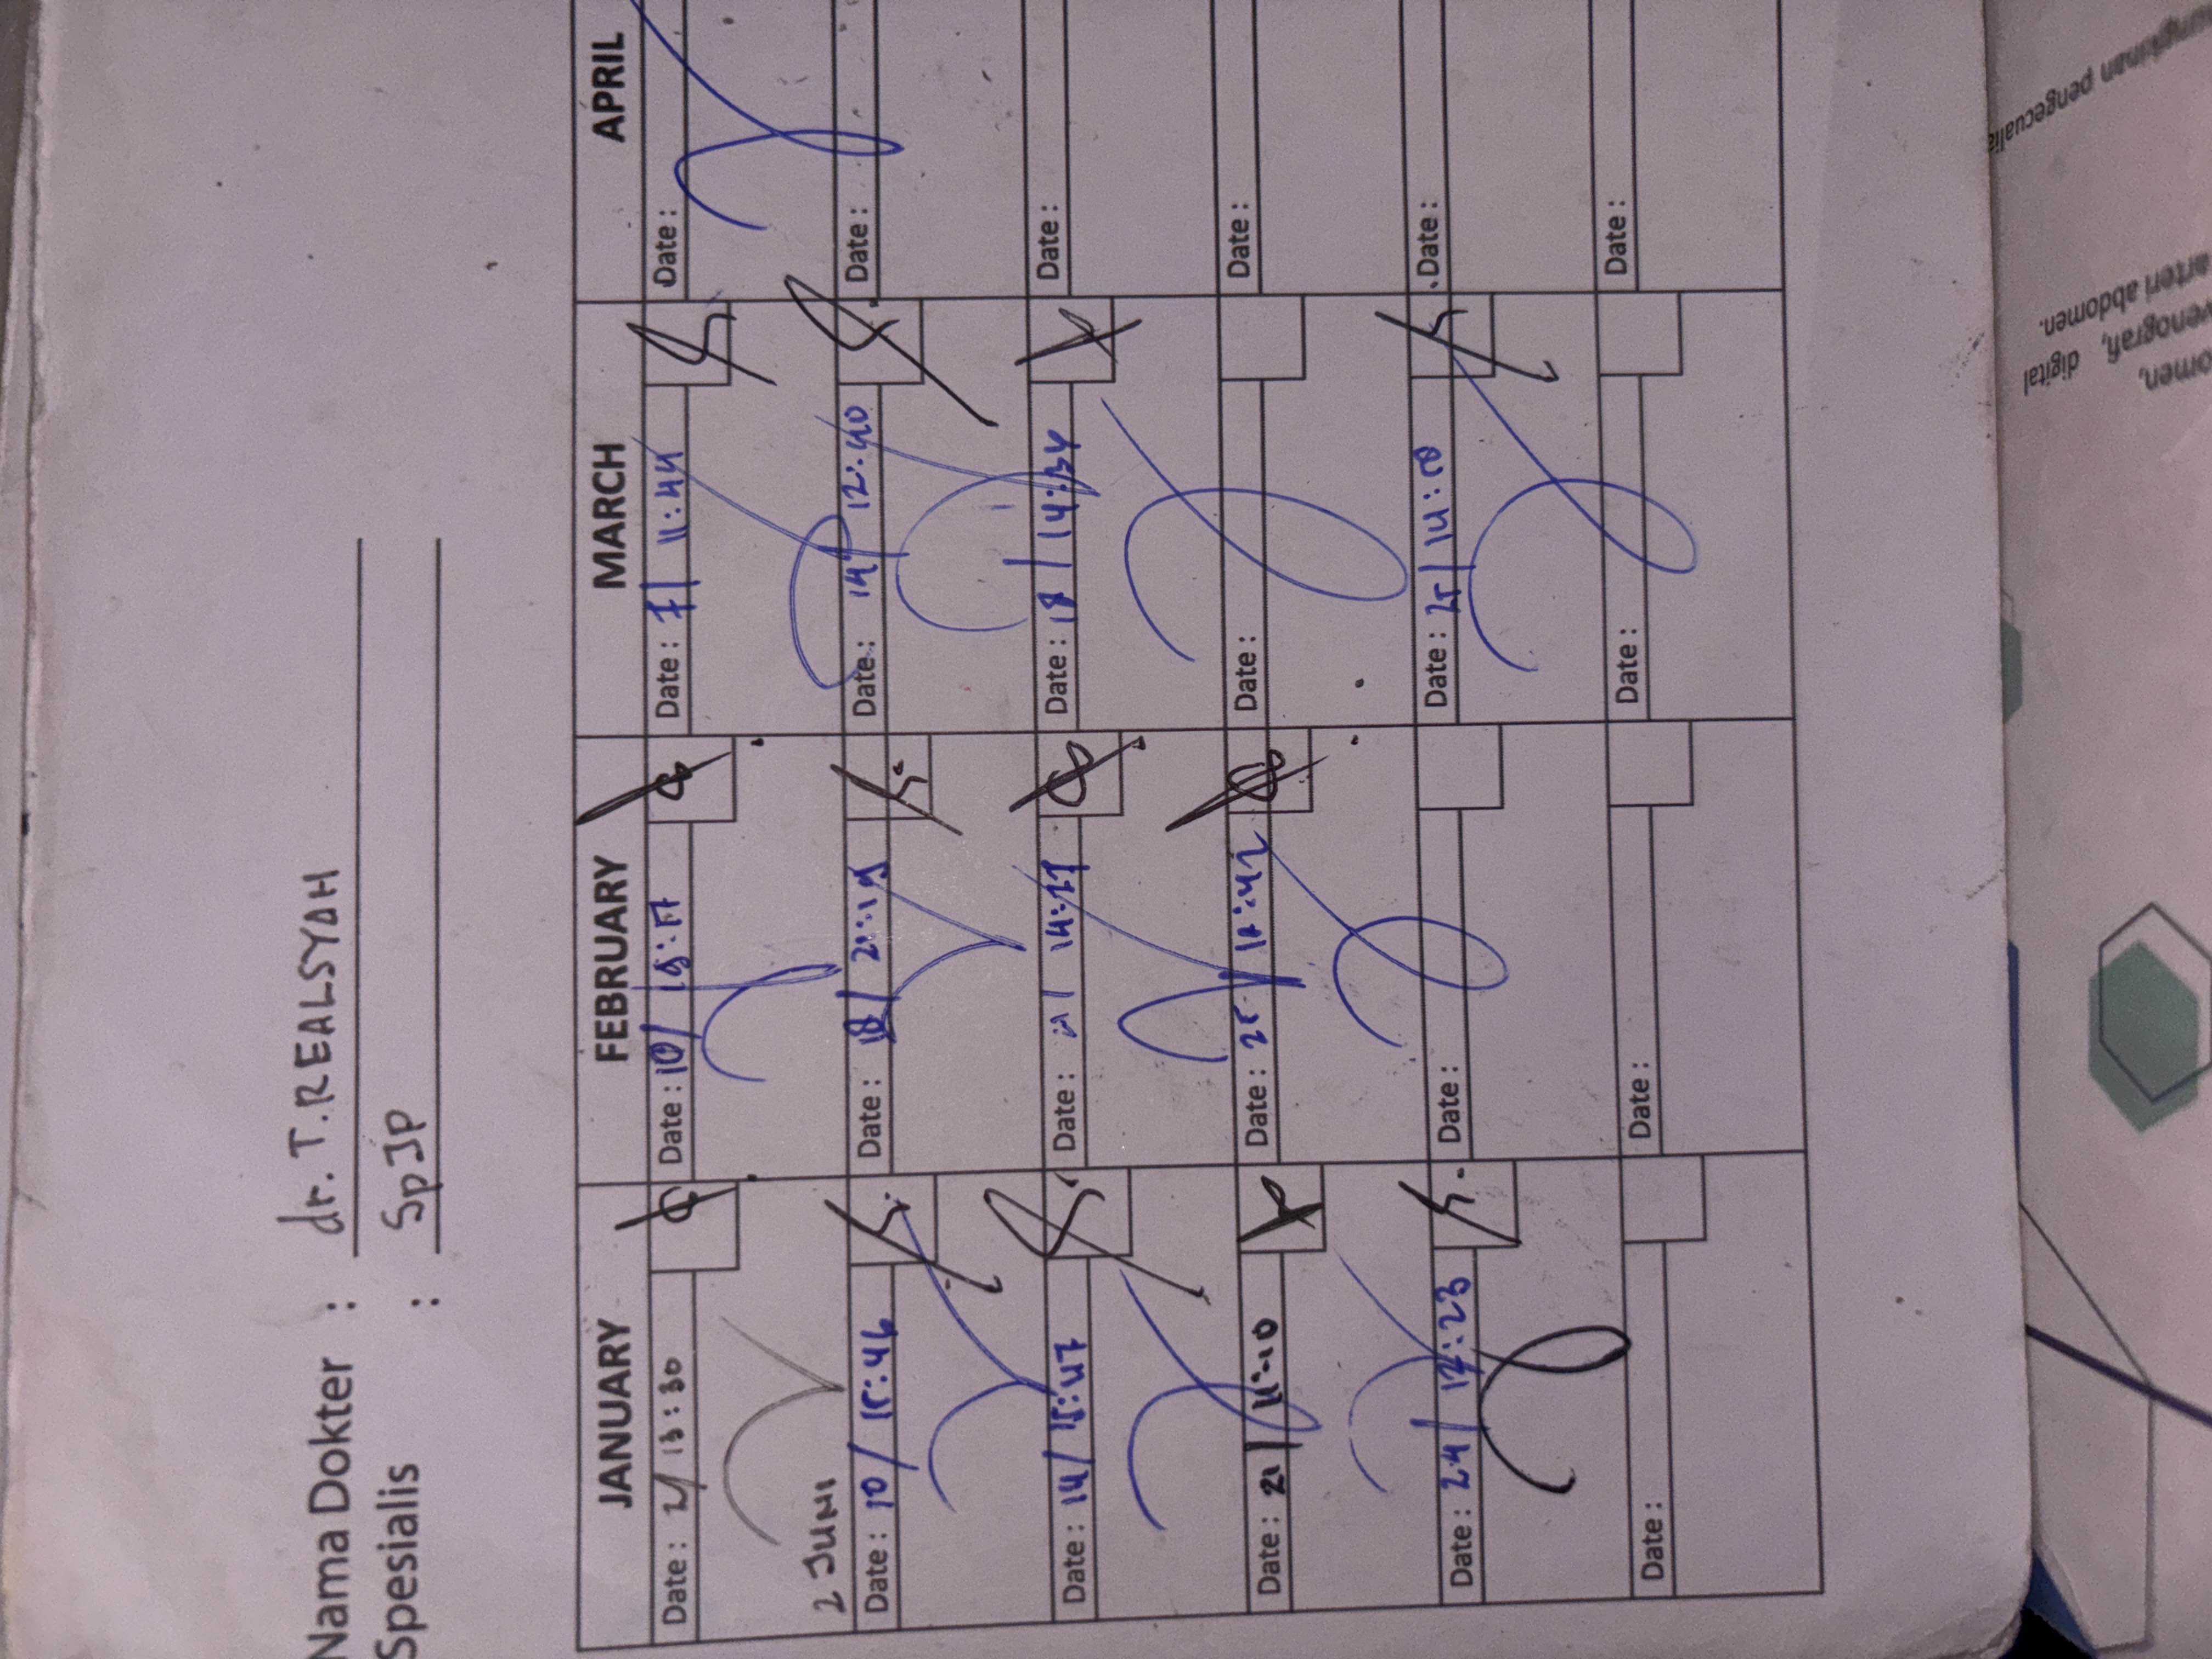 Nama Dokter : dr. T. REALSYAH
Spesialis : SpJP
JANUARY FEBRUARY MARCH APRIL
Date : 2/ 13:30 Date : 10/ 19:17 Date : 7/ 11:44 Date :
2 JUNI
Date : 10/ 15:46 Date : 18/ 2 Date : 14/ 12:40 Date :
Date : 14/ 15:47 Date : 21/ 14: Date : 18/ 14:34 Date :
Date : 21/ Date : 25/ Date : Date :
Date : 24/ :23 Date : Date : 25/ 14: Date :
Date : Date : Date : Date :
pengecualia
arteri abdomen.
venografi, digital